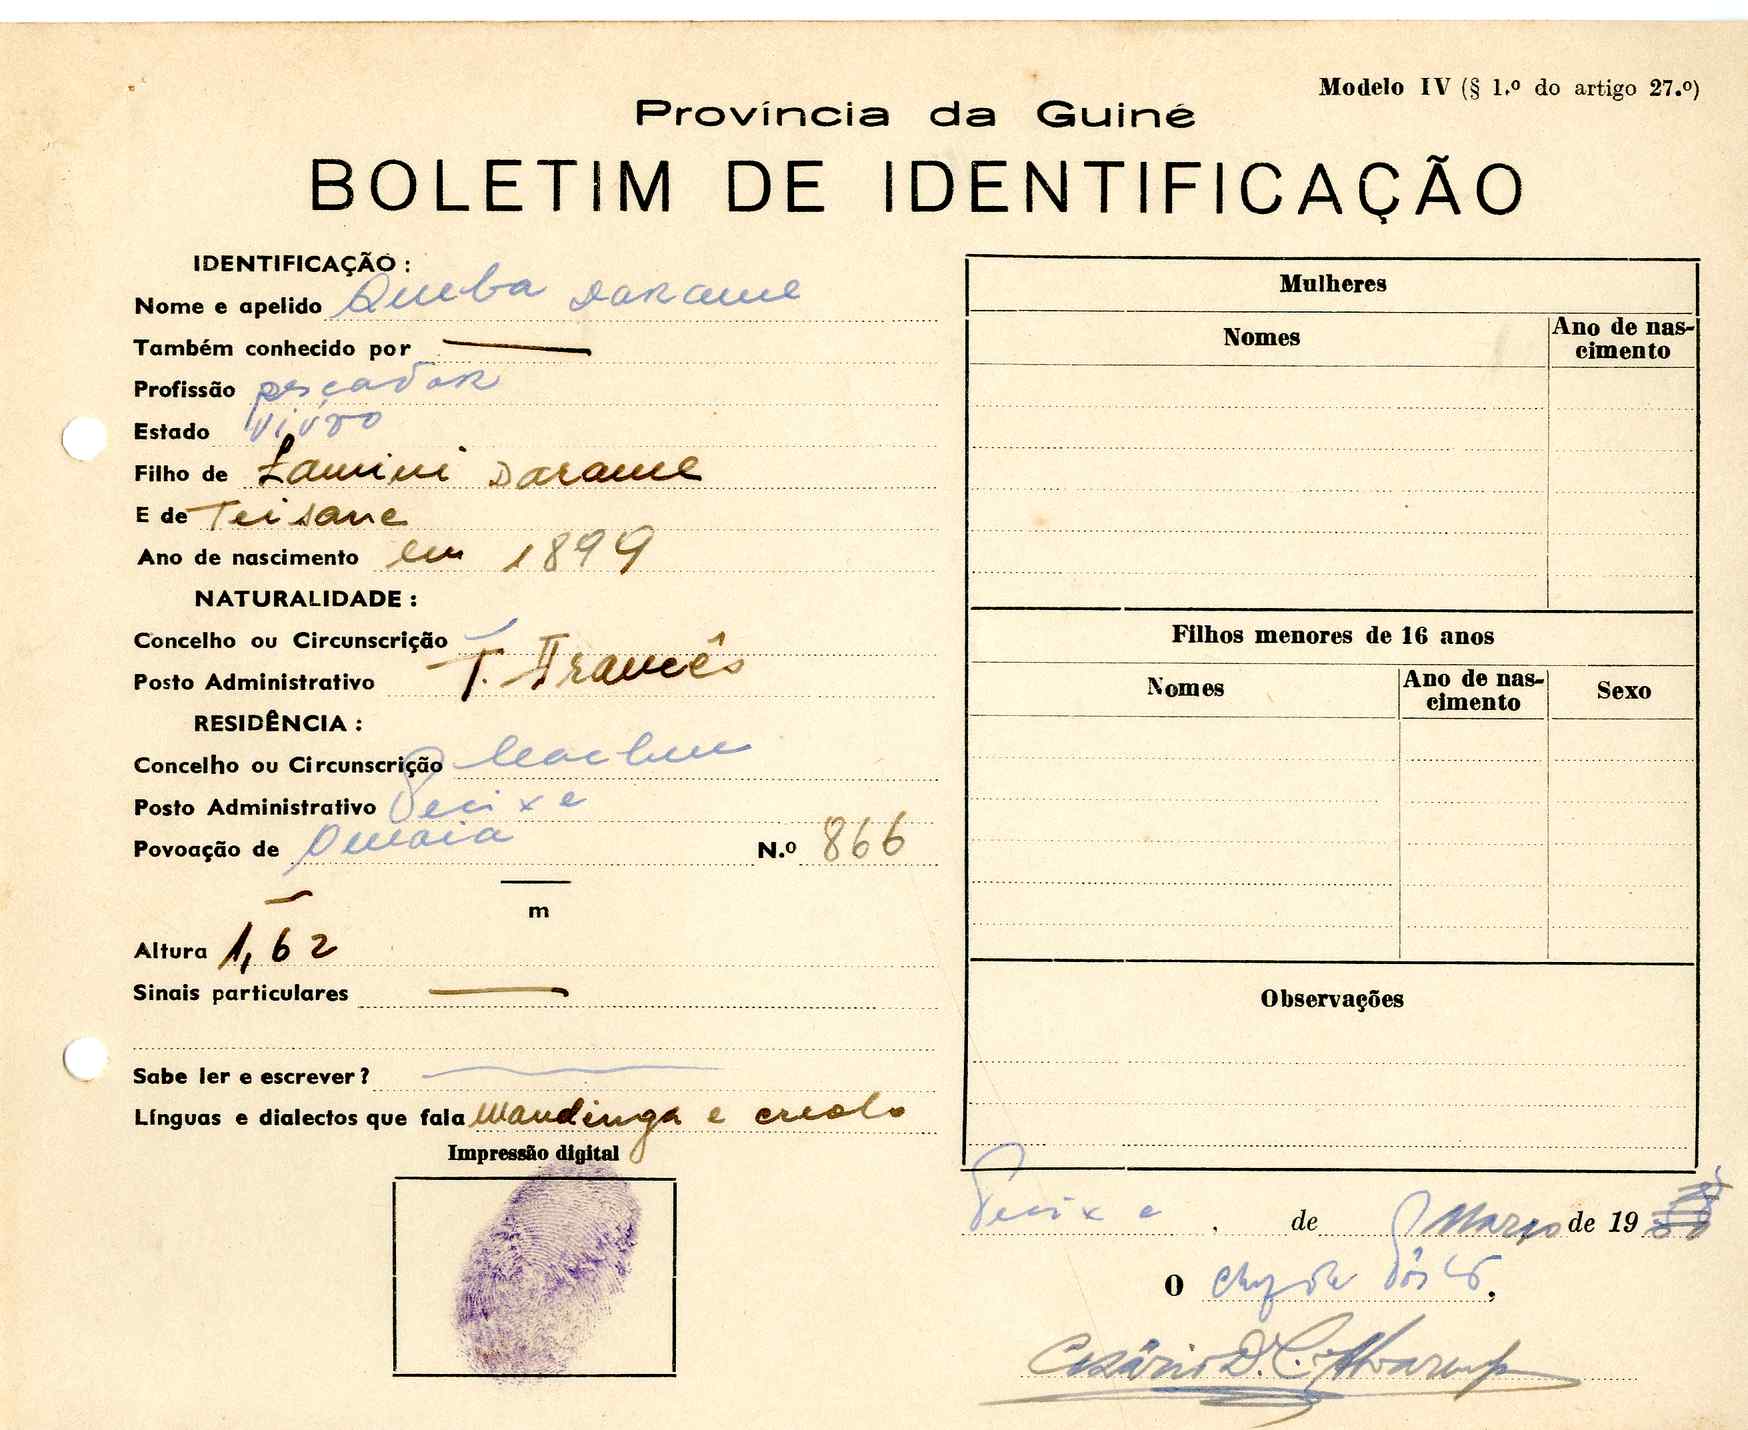 Modelo IV (§ 1.º do artigo 27.º)
Província da Guiné
BOLETIM DE IDENTIFICAÇÃO
IDENTIFICAÇÃO :
Nome e apelido Queba Darame
Também conhecido por
Profissão pescador
Estado
Filho de Lamini Darame
E de Teisane
Ano de nascimento em 1899
NATURALIDADE :
Concelho ou Circunscrição
Posto Administrativo T. Francês
RESIDÊNCIA :
Concelho ou Circunscrição Cacheu
Posto Administrativo Pecixe
Povoação de N.º 866
m
Altura 1,62
Sinais particulares
Sabe ler e escrever ?
Línguas e dialectos que fala Mandinga e creolo
Impressão digital
Mulheres
Nomes
Ano de nas-
cimento
Filhos menores de 16 anos
Nomes
Ano de nas-
cimento
Sexo
Observações
Pecixe , de Março de 19
O chefe de Pôsto,
Cesário D. C. Alvarenga